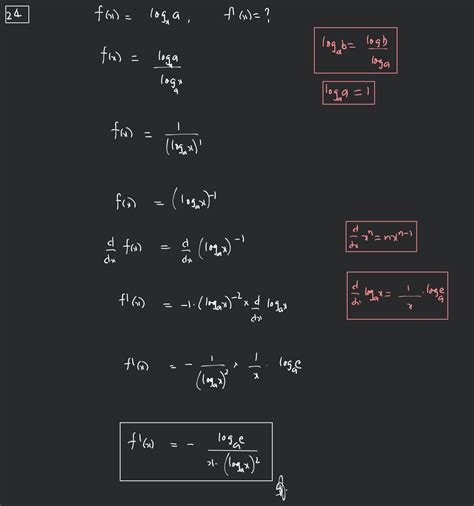 24
f(x) = logₓa , f'(x) = ?
f(x) = logₐa / logₐx
log_a b = log b / log a
logₐa = 1
f(x) = 1 / (logₐx)¹
f(x) = (logₐx)⁻¹
d/dx f(x) = d/dx (logₐx)⁻¹
d/dx xⁿ = nxⁿ⁻¹
f'(x) = -1·(logₐx)⁻² × d/dx logₐx
d/dx logₐx = 1/x · logₐe
f'(x) = - 1/(logₐx)² × 1/x · logₐe
f'(x) = - logₐe / x·(logₐx)²